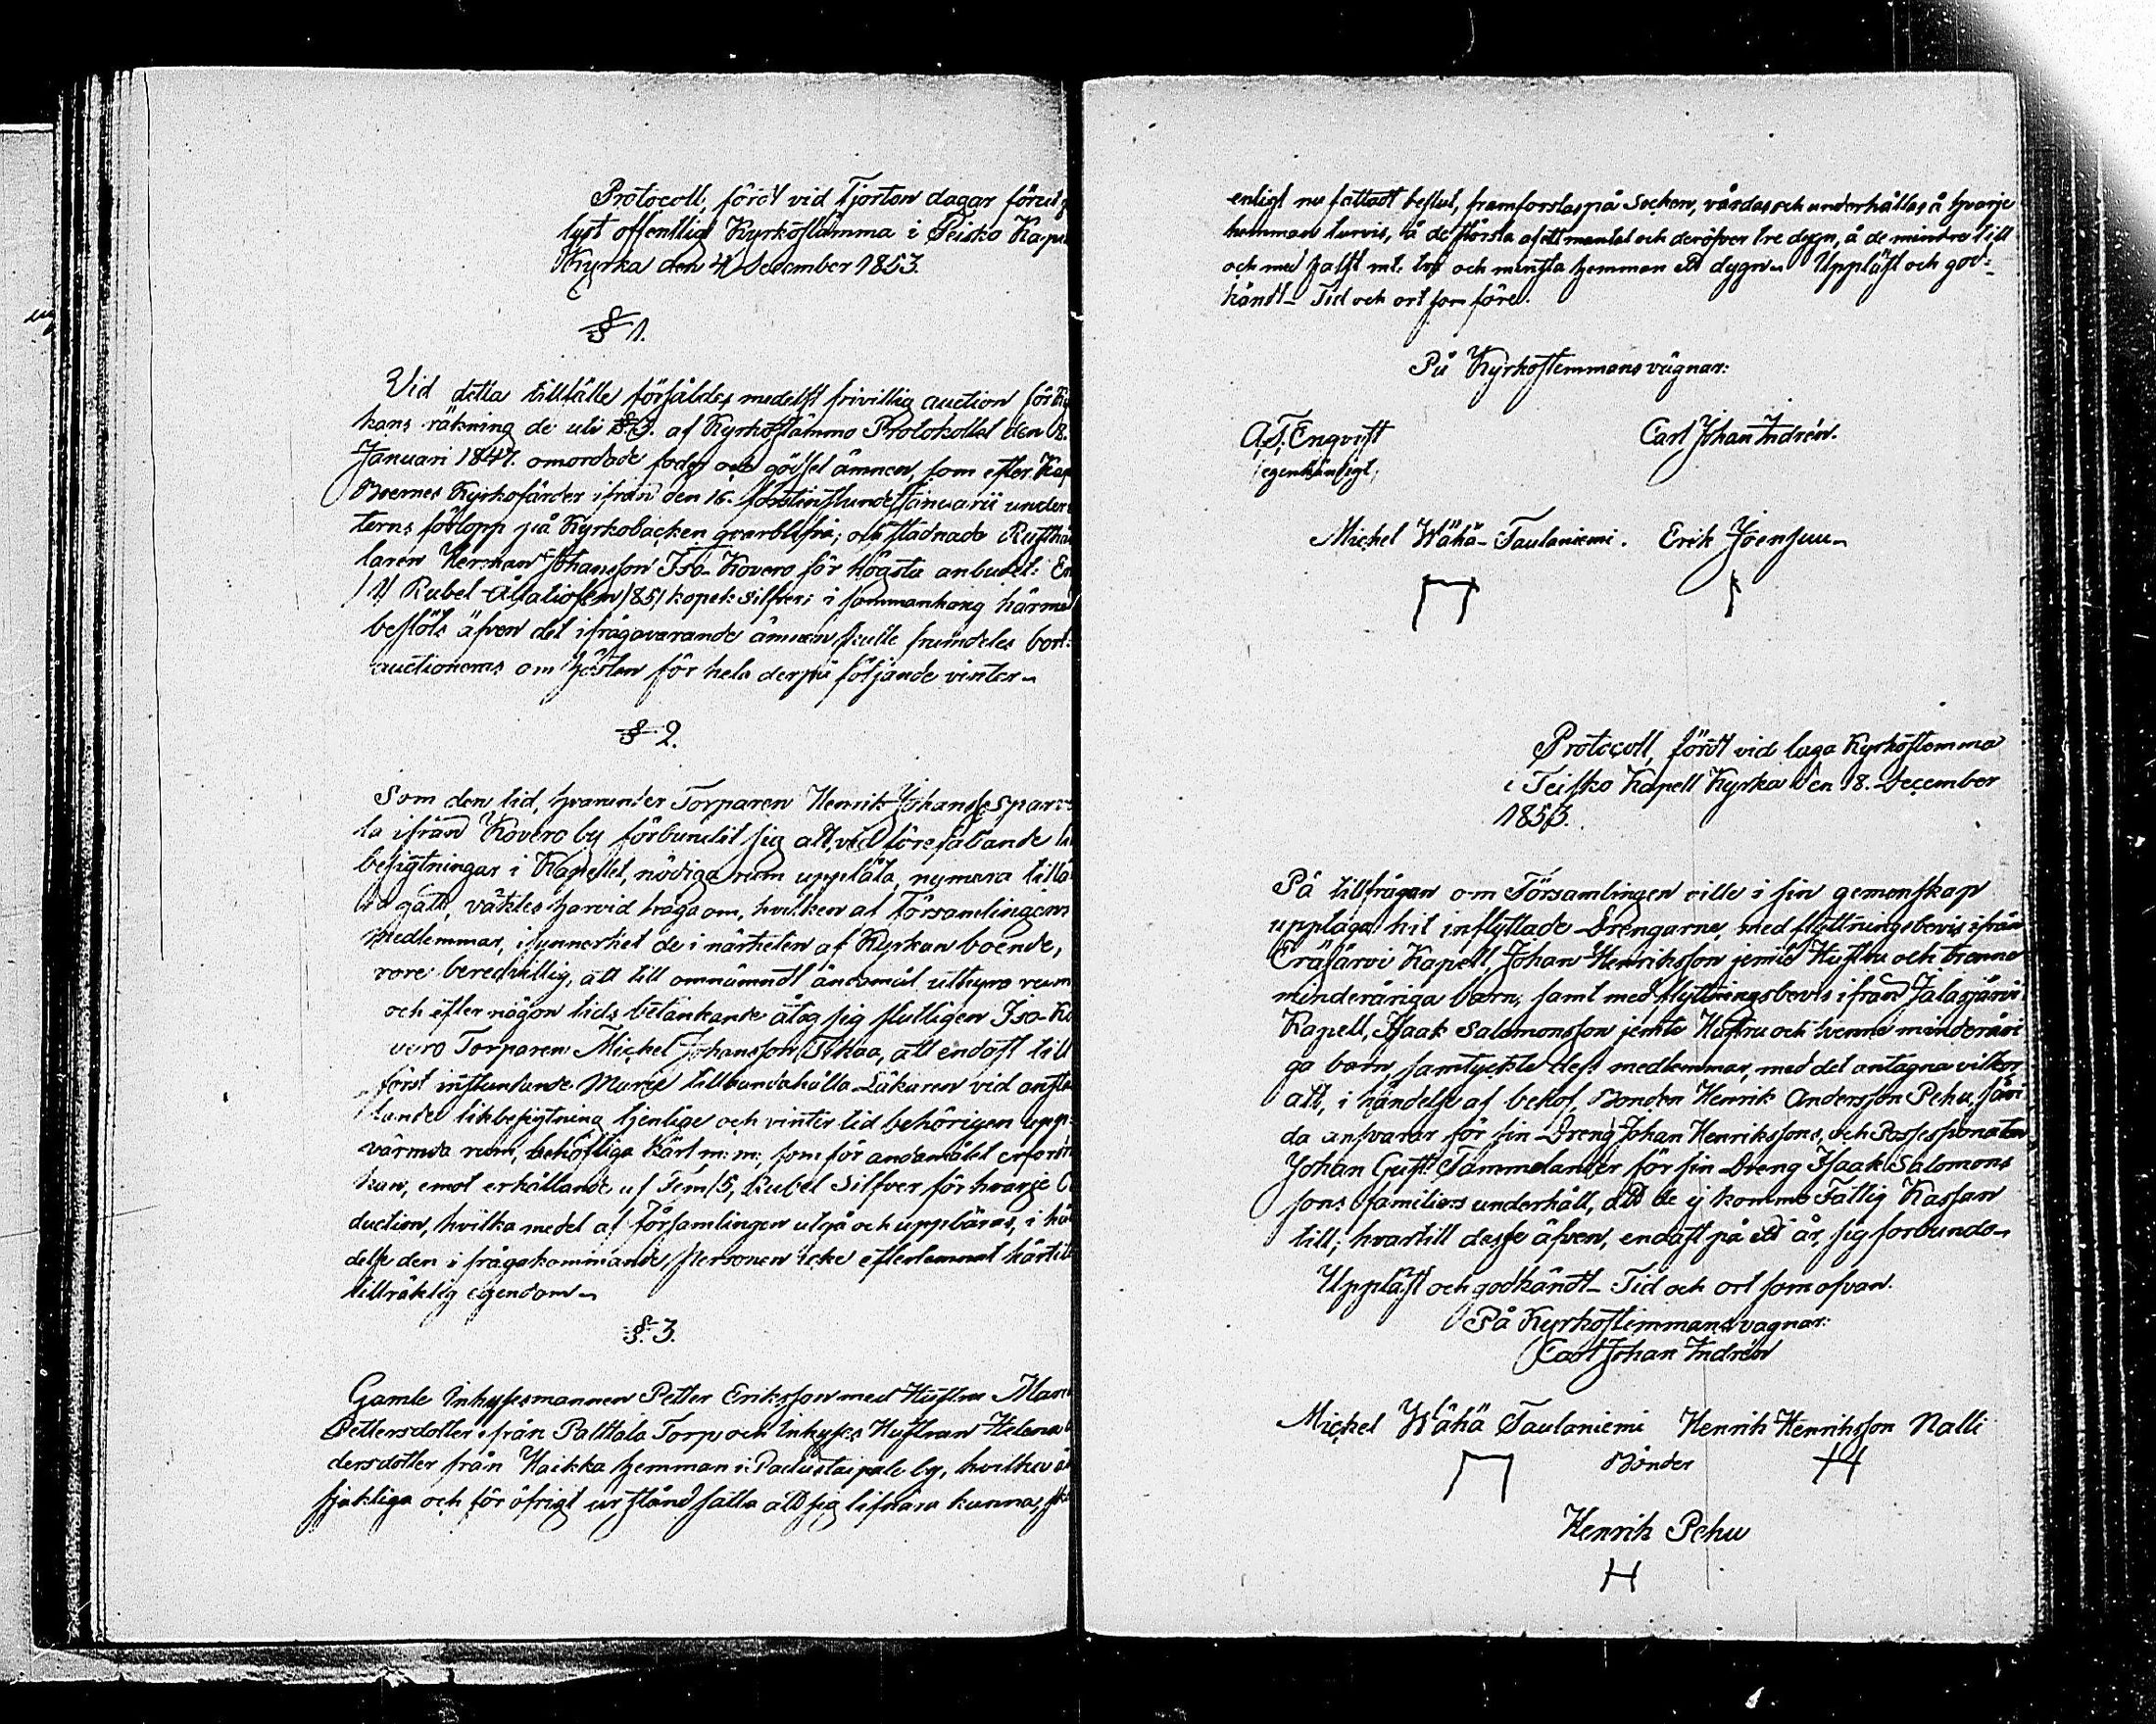 Protocoll, fördt vid Fjorton dagar förut
lyst offentlig Kyrkostämma i Teisko Kap
Kyrka den 4 December 1853.
§ 1.
Vid detta tillfälle försåldes medelst frivillig auction för Ky
kans räkning de uti § 3. af Kyrkostämmo Protokollet den 8.
Januari 1847. omordade foder och gödsel ämnen, som efter Kap
Boernes Kyrkofärder ifrån den 16. förstinstundet Januarii under
terns förlopp på Kyrkobacken qvarblifva; och stadnade Rusthål
laren Herman Johansson Iso-Kovero för högsta anbudet: En
/1/ Rubel Åttatiofem /85/ kopek Silfver; i sammanhang härmed
beslöts äfven det ifrågavarande ämnen skulle framdeles bort-
auctioneras om hösten för hela derpå följande vinter.
§ 2.
Som den tid, hvarunder Torparen Henrik Johansson Sparv
la ifrån Kovero by förbundit sig att, vid förefallande li
besigtningar i Kapellet, nödiga rum upplåta, nymera tillä
da gått, väktes harvid fråga om, hvilken af Församlingens
medlemmar, i synnerhet de i närheten af Kyrkan boende,
vore beredvillig, att till omnämndt ändamål uthyra rum
och efter någon tids betänkande åtog sig slutligen Iso-Ko
vero Torparen Michel Johansson Tikaa, att endast till
först instundande Marie tillhandahålla Läkaren vid anstäl
lande likbesigtning tjenlige och vinter tid behörigen upp-
värmda rum, behöfliga Kärl m: m: som för andamålet erfordr
kan, emot erhållande af Fem /5/ Rubel Silfver för hvarje O
duction, hvilka medel af församlingen utgå och uppbäras, i hän
delse den i frågakommande personen icke efterlemnat härtill
tillräklig egendom.
§. 3.
Gamle Inhysesmannen Petter Eriksson med Hustru Mar
Pettersdotter från Palttala Torp och Inhyses Hustrun Helena
dersdotter från Haikka hemman i Padustaipale by, hvilka ä
sjukliga och för öfrigt ur stånd satta att sig lifnära kunna, sk
enligt nu fattadt beslut, framforslas på Socken, vårdas och underhållas å hvarje
hemman turvis, å de största af ett mantal och deröfver tre dygn, å de mindre till
och med halft mt. två och minsta hemman ett dygn. Uppläst och god-
händt. Tid och ort som före.
På Kyrkostemmans vägnar:
A. F. Enqvist
/egenhändigt/
Carl Johan Indrén.
Michel Wähä-Taulaniemi. Erik Joensuu.
Protocoll, fördt vid laga Kyrkostemma
i Teisko Kapell Kyrka den 18. December
1853.
På tillfrågan om Församlingen ville i sin gemenskap
upptaga hit inflyttade Drengarne, med flyttningsbevis ifrån
Eräjärvi Kapell, Johan Henriksson jemte Hustru och trenne
minderåriga barn, samt med flyttningsbevis ifrån Jalasjärvi
Kapell, Isaak Salomonsson jemte Hustru och tvenne minderåri
ga barn, samtyckte dess medlemmar, med det antagna vilkor
att, i händelse af behof, Bonden Henrik Andersson Pehu, såvi
da ansvarar för sin Dreng Johan Henrikssons, och Possessionaten
Johan Gust: Tammelander för sin Dreng Isaak Salomons
sons familiers underhåll, att de ej komma Fattig Kassan
till; hvartill desse äfven, endast på ett år, sig förbundo.
Uppläst och godkändt. Tid och ort som ofvan.
På Kyrkostemmans vägnar:
Carl Johan Indrén
Michel Wähä Taulaniemi Henrik Henriksson Nalli
Bönder
Henrik Pehu